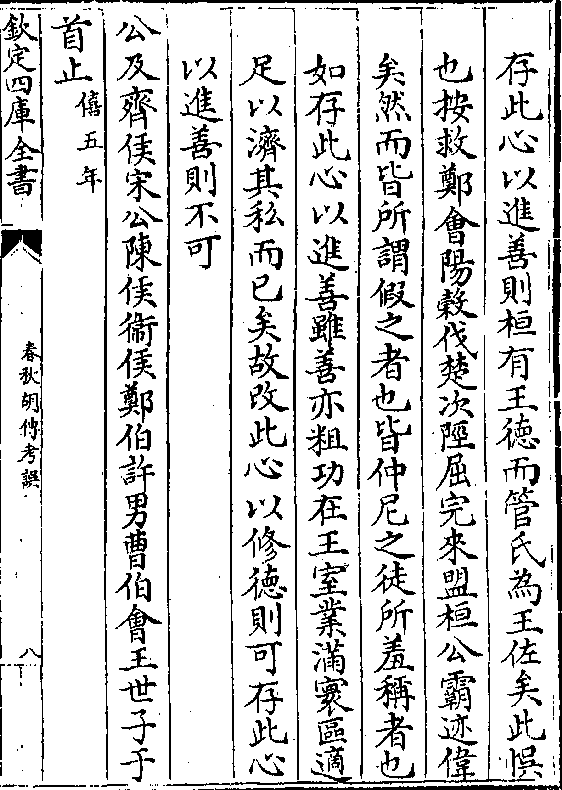 存此心以進善則桓有王徳而管氏為王佐矣此悮
也按救鄭會陽榖伐楚次陘屈完來盟桓公霸迹偉
矣然而皆所謂假之者也皆仲尼之徒所羞稱者也
如存此心以進善雖善亦粗功在王室業滿寰區適
足以濟其私而已矣故改此心以修徳則可存此心
以進善則不可
公及齊侯宋公陳侯衞侯鄭伯許男曹伯會王世子于
首止僖五年
欽定四庫全書
春秋胡傳考誤
八